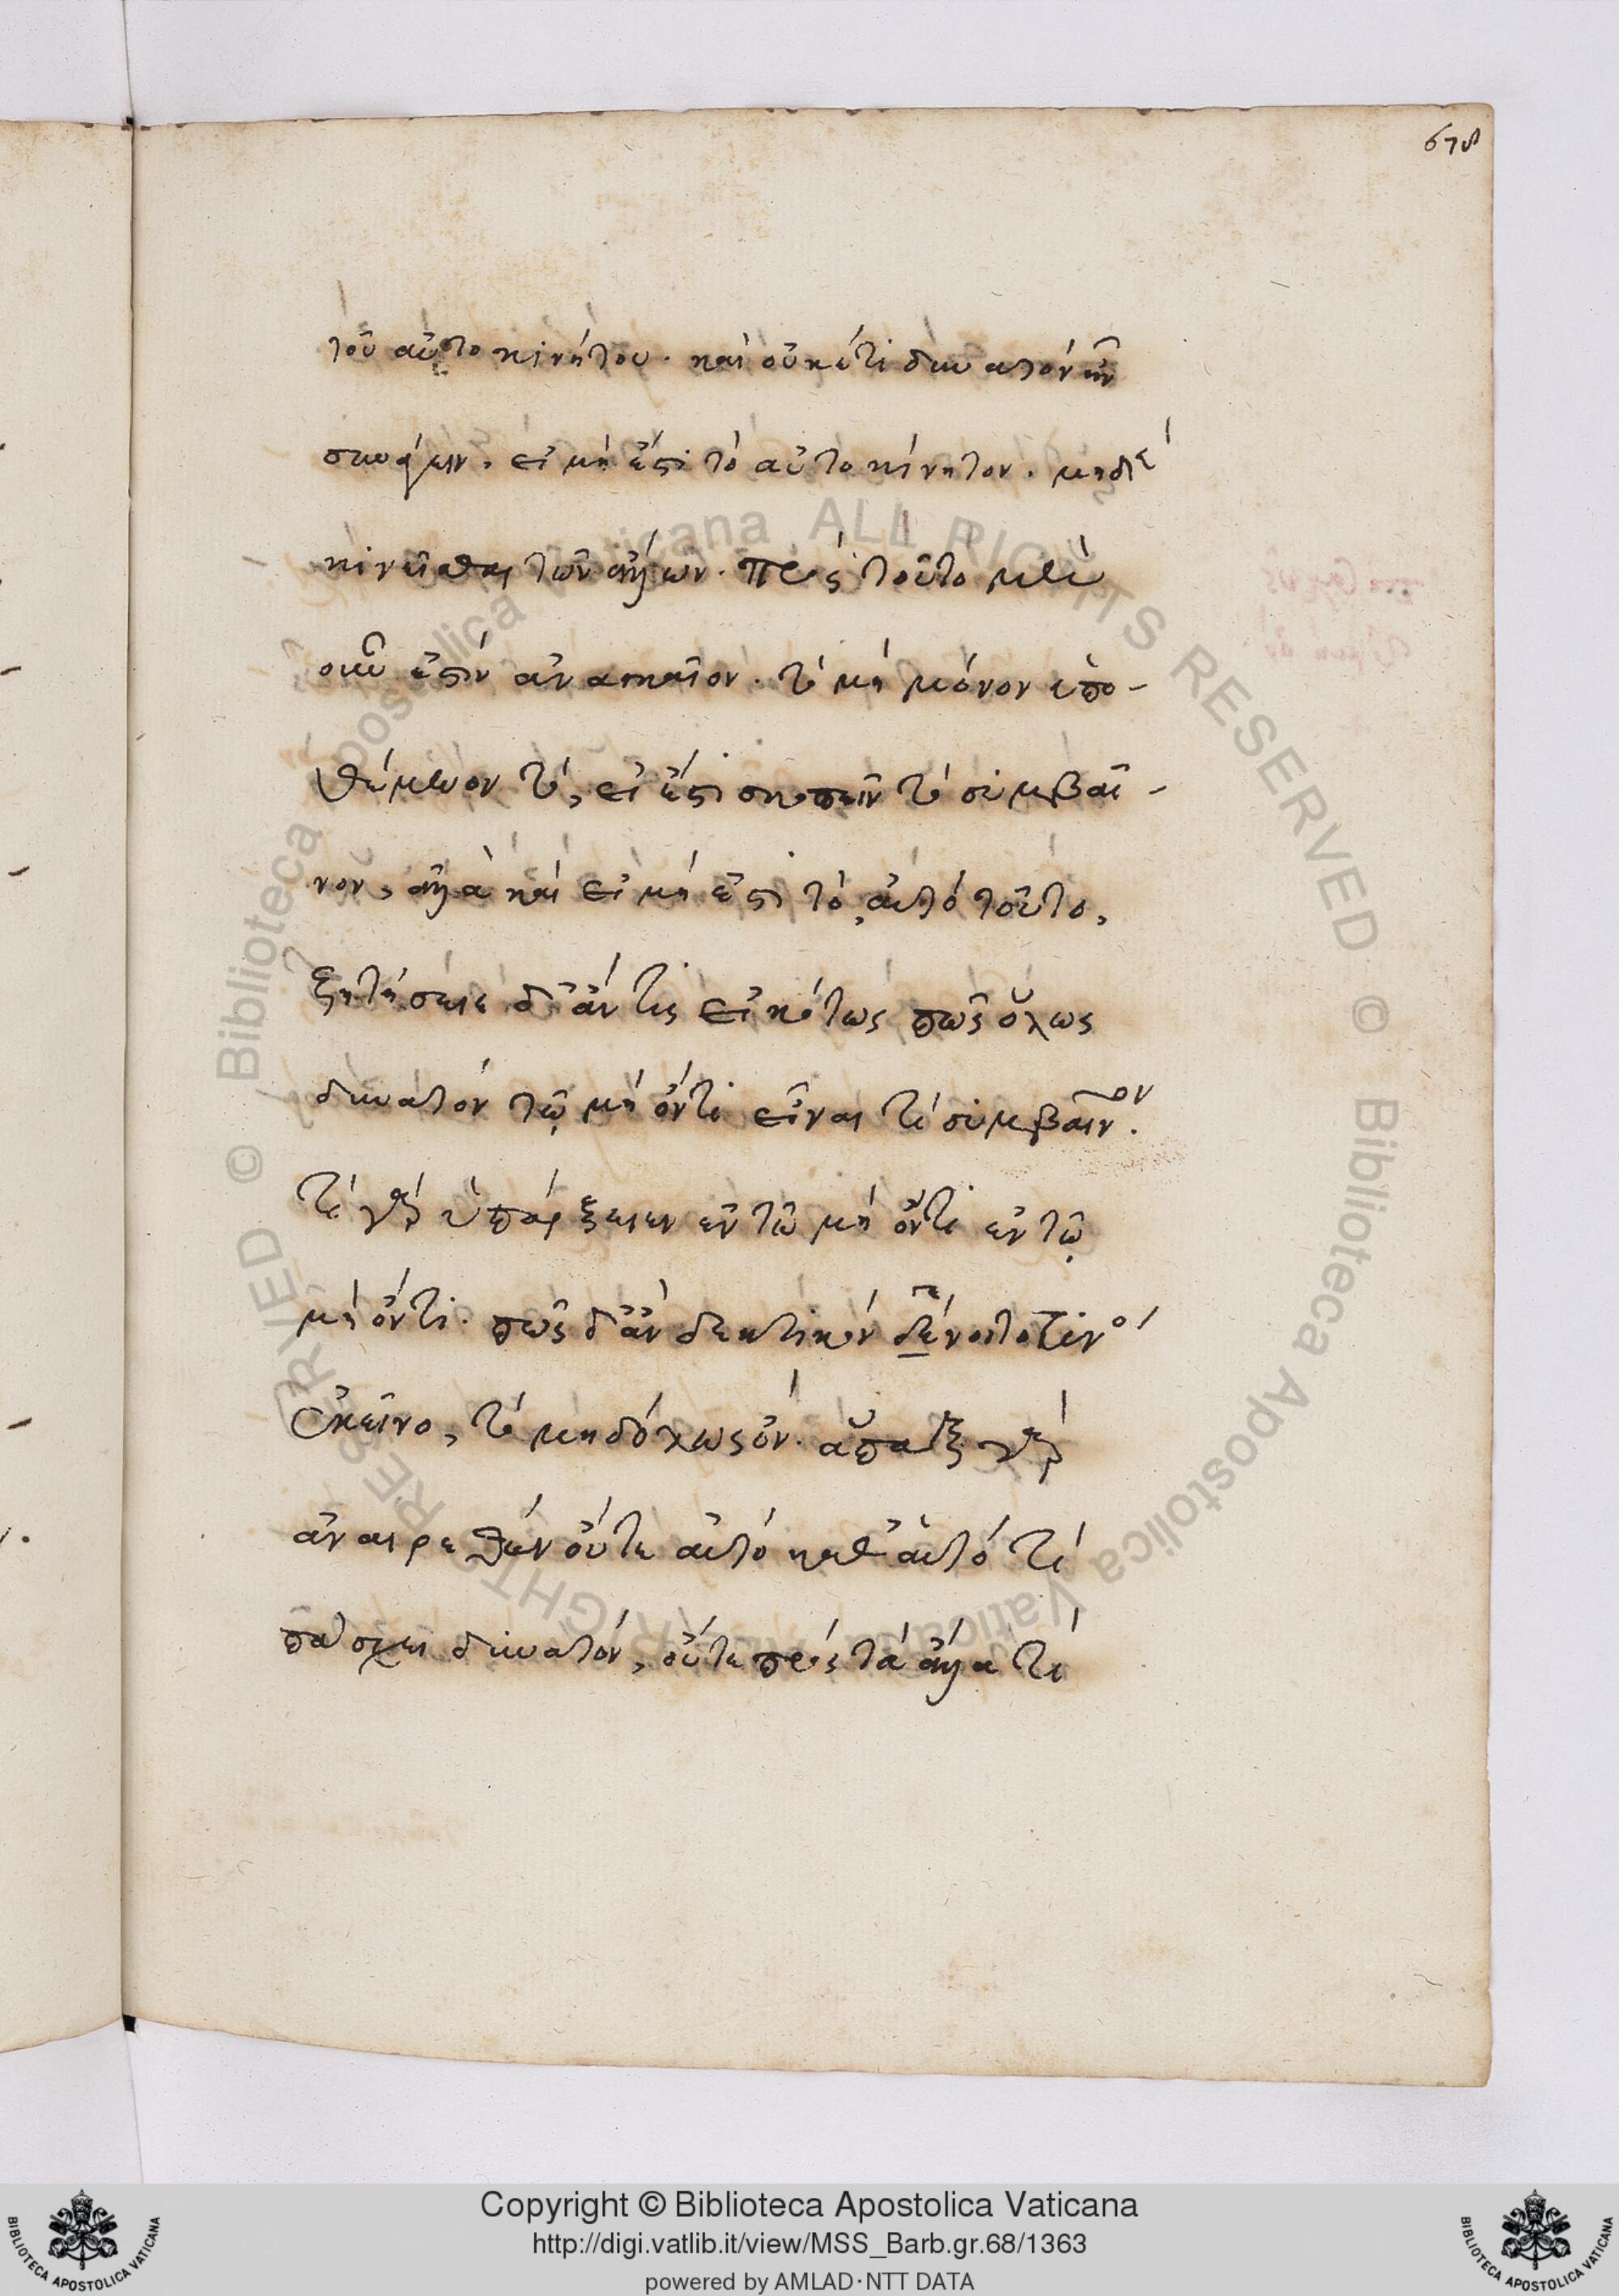 678
τοῦ αὐτοκινήτου. καὶ οὐκέτι δυνατόν ἦν
σκοπεῖν, εἰ μὴ ἔστι τὸ αὐτοκίνητον. μηδὲ
κινεῖσθαι τῶν ἄλλων. πρὸς τοῦτο μὲν
οὖν ἐστὶν ἀναγκαῖον. τὸ μὴ μόνον ὑπο-
θέμενον τὸ, εἰ ἔστι σκοπεῖν τὸ συμβαῖ-
νον, ἀλλὰ καὶ εἰ μὴ ἔστι τὸ αὐτὸ τοῦτο,
ζητήσειε δ' ἄν τις εἰκότως πῶς ὅλως
δυνατόν τῷ μὴ ὄντι εἶναί τι συμβαῖνον.
τί γὰρ ὑπάρξειεν ἐν τῷ μὴ ὄντι ἐν τῷ
μὴ ὄντι. πῶς δ' ἂν δεκτικόν γένοιτό τινο
ἐκεῖνο, τὸ μηδόλως ὄν. ἅπαξ γὰρ
ἀναιρεθὲν οὔτε αὐτὸ καθ' αὑτό τι
πάσχει δυνατόν, οὔτε πρὸς τὰ ἄλλα τι
Copyright © Biblioteca Apostolica Vaticana
http://digi.vatlib.it/view/MSS_Barb.gr.68/1363
powered by AMLAD·NTT DATA
BIBLIOTECA APOSTOLICA VATICANA
BIBLIOTECA APOSTOLICA VATICANA
© Biblioteca Apostolica Vaticana ALL RIGHTS RESERVED © Biblioteca Apostolica Vaticana ALL RIGHTS RESERVED